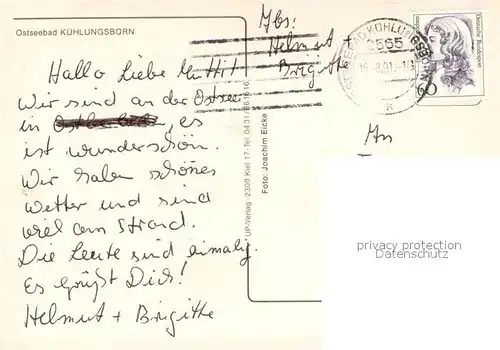 Ostseebad KÜHLUNGSBORN
Abs:
Helmut +
Brigitte
OSTSEEBAD KÜHLUNGSBORN
2565
Deutsche Bundespost
60
Hallo liebe Mutti!
Wir sind an der Ostsee
in es
ist wunderschön.
Wir haben schönes
Wetter und sind
viel am Strand.
Die Leute sind einmalig.
Es grüßt Dich!
Helmut + Brigitte
An
UP-Verlag · 2300 Kiel 17 · Tel. 0431/361616
Foto: Joachim Eicke
privacy protection
Datenschutz